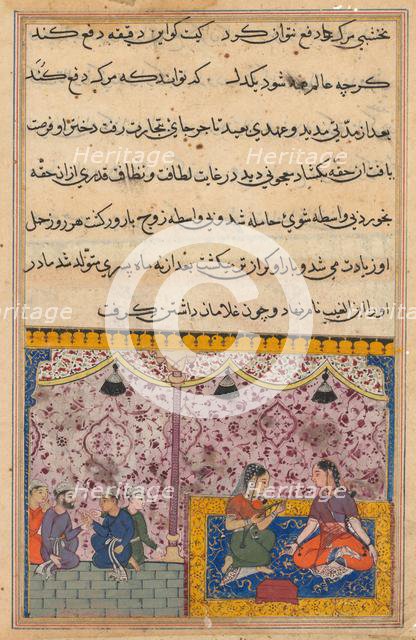 نخشبی مرک را دفع نتوان کرد کیست کو این دقیقه دفع کند
کرچه عالم همه شود یکدل که نتوانند که مرک دفع کنند
بعد از مدتی مدید و عهدی بعید تاجر جای تجارت رفت دختر او فرصت
یافت ان حقه بکشاد معجونی دید در غایت لطافت و نظافت قدری ازان حقه
بخورد بی واسطه شوی حامله شد و بی واسطه زوج بارور کشت هر روز حمل
او زیادت می شد و بار او کران تر می کشت بعد از نه ماه پسری متولد شد مادر
او را ابن الغیب نام نهاد و چون غلامان داشتن کرفت
Heritage
Heritage
Heritage
Heritage
Heritage
Heritage
Heritage
Heritage